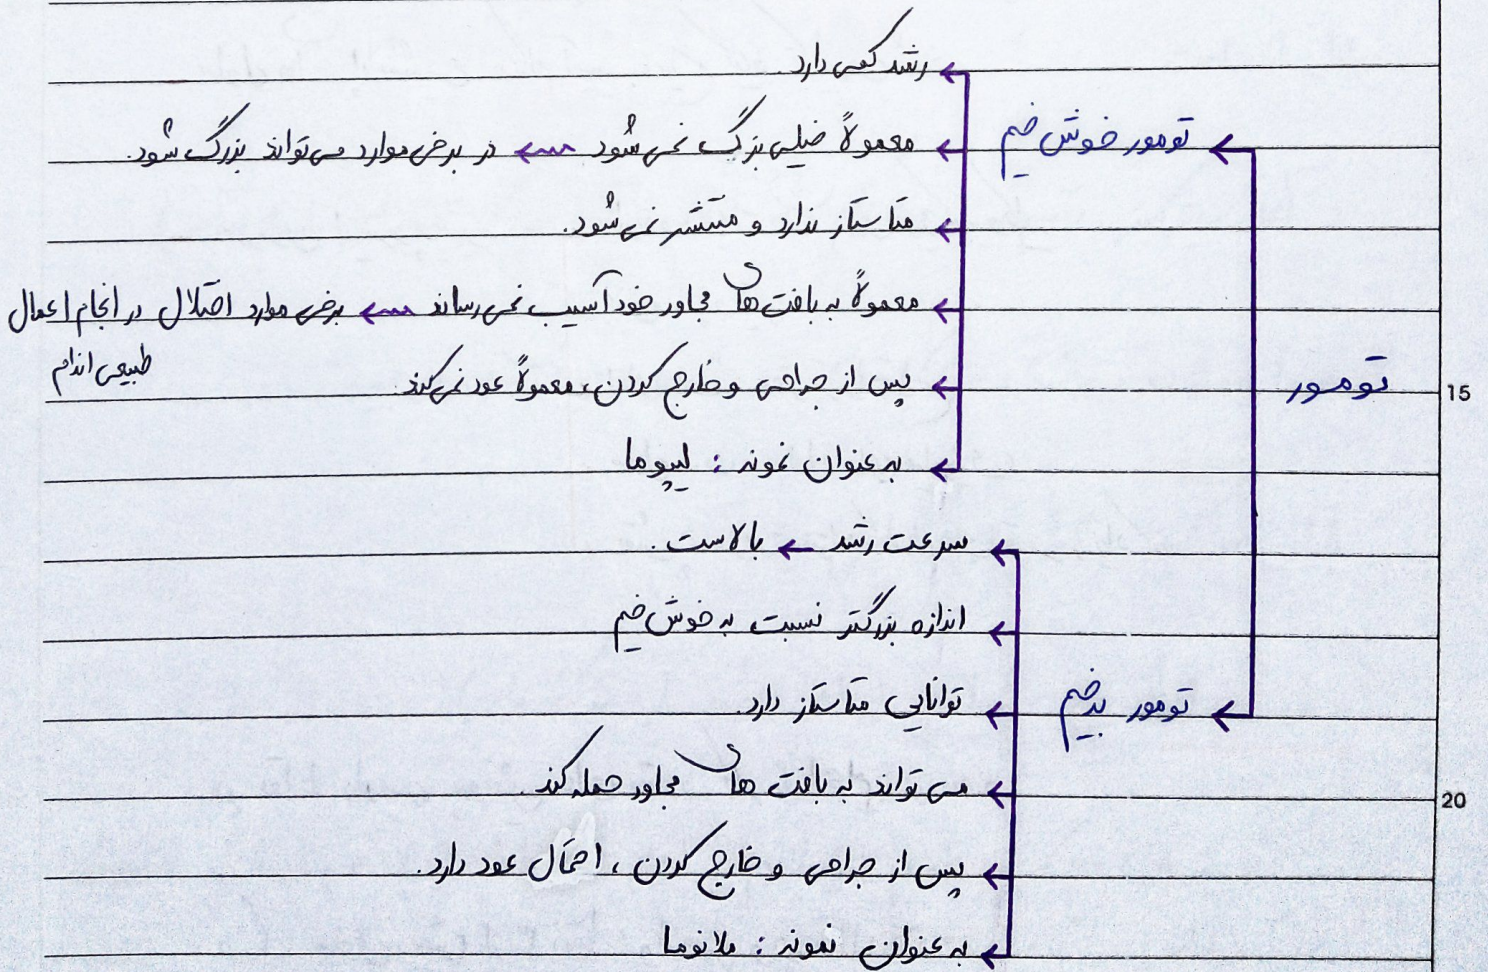 رشد کمی دارد.
تومور خوش‌خیم ← معمولاً خیلی بزرگ نمی‌شود ← در برخی موارد می‌تواند بزرگ شود.
متاستاز ندارد و منتشر نمی‌شود.
معمولاً به بافت‌های مجاور خود آسیب نمی‌رساند ← برخی موارد اختلال در انجام اعمال
طبیعی اندام
تومور
15
پس از جراحی و خارج کردن، معمولاً عود نمی‌کند.
به عنوان نمونه : لیپوما
سرعت رشد ← بالاست.
اندازه بزرگتر نسبت به خوش‌خیم
تومور بدخیم ← توانایی متاستاز دارد.
می‌تواند به بافت های مجاور حمله کند.
20
پس از جراحی و خارج کردن ، احتمال عود دارد.
به عنوان نمونه : ملانوما